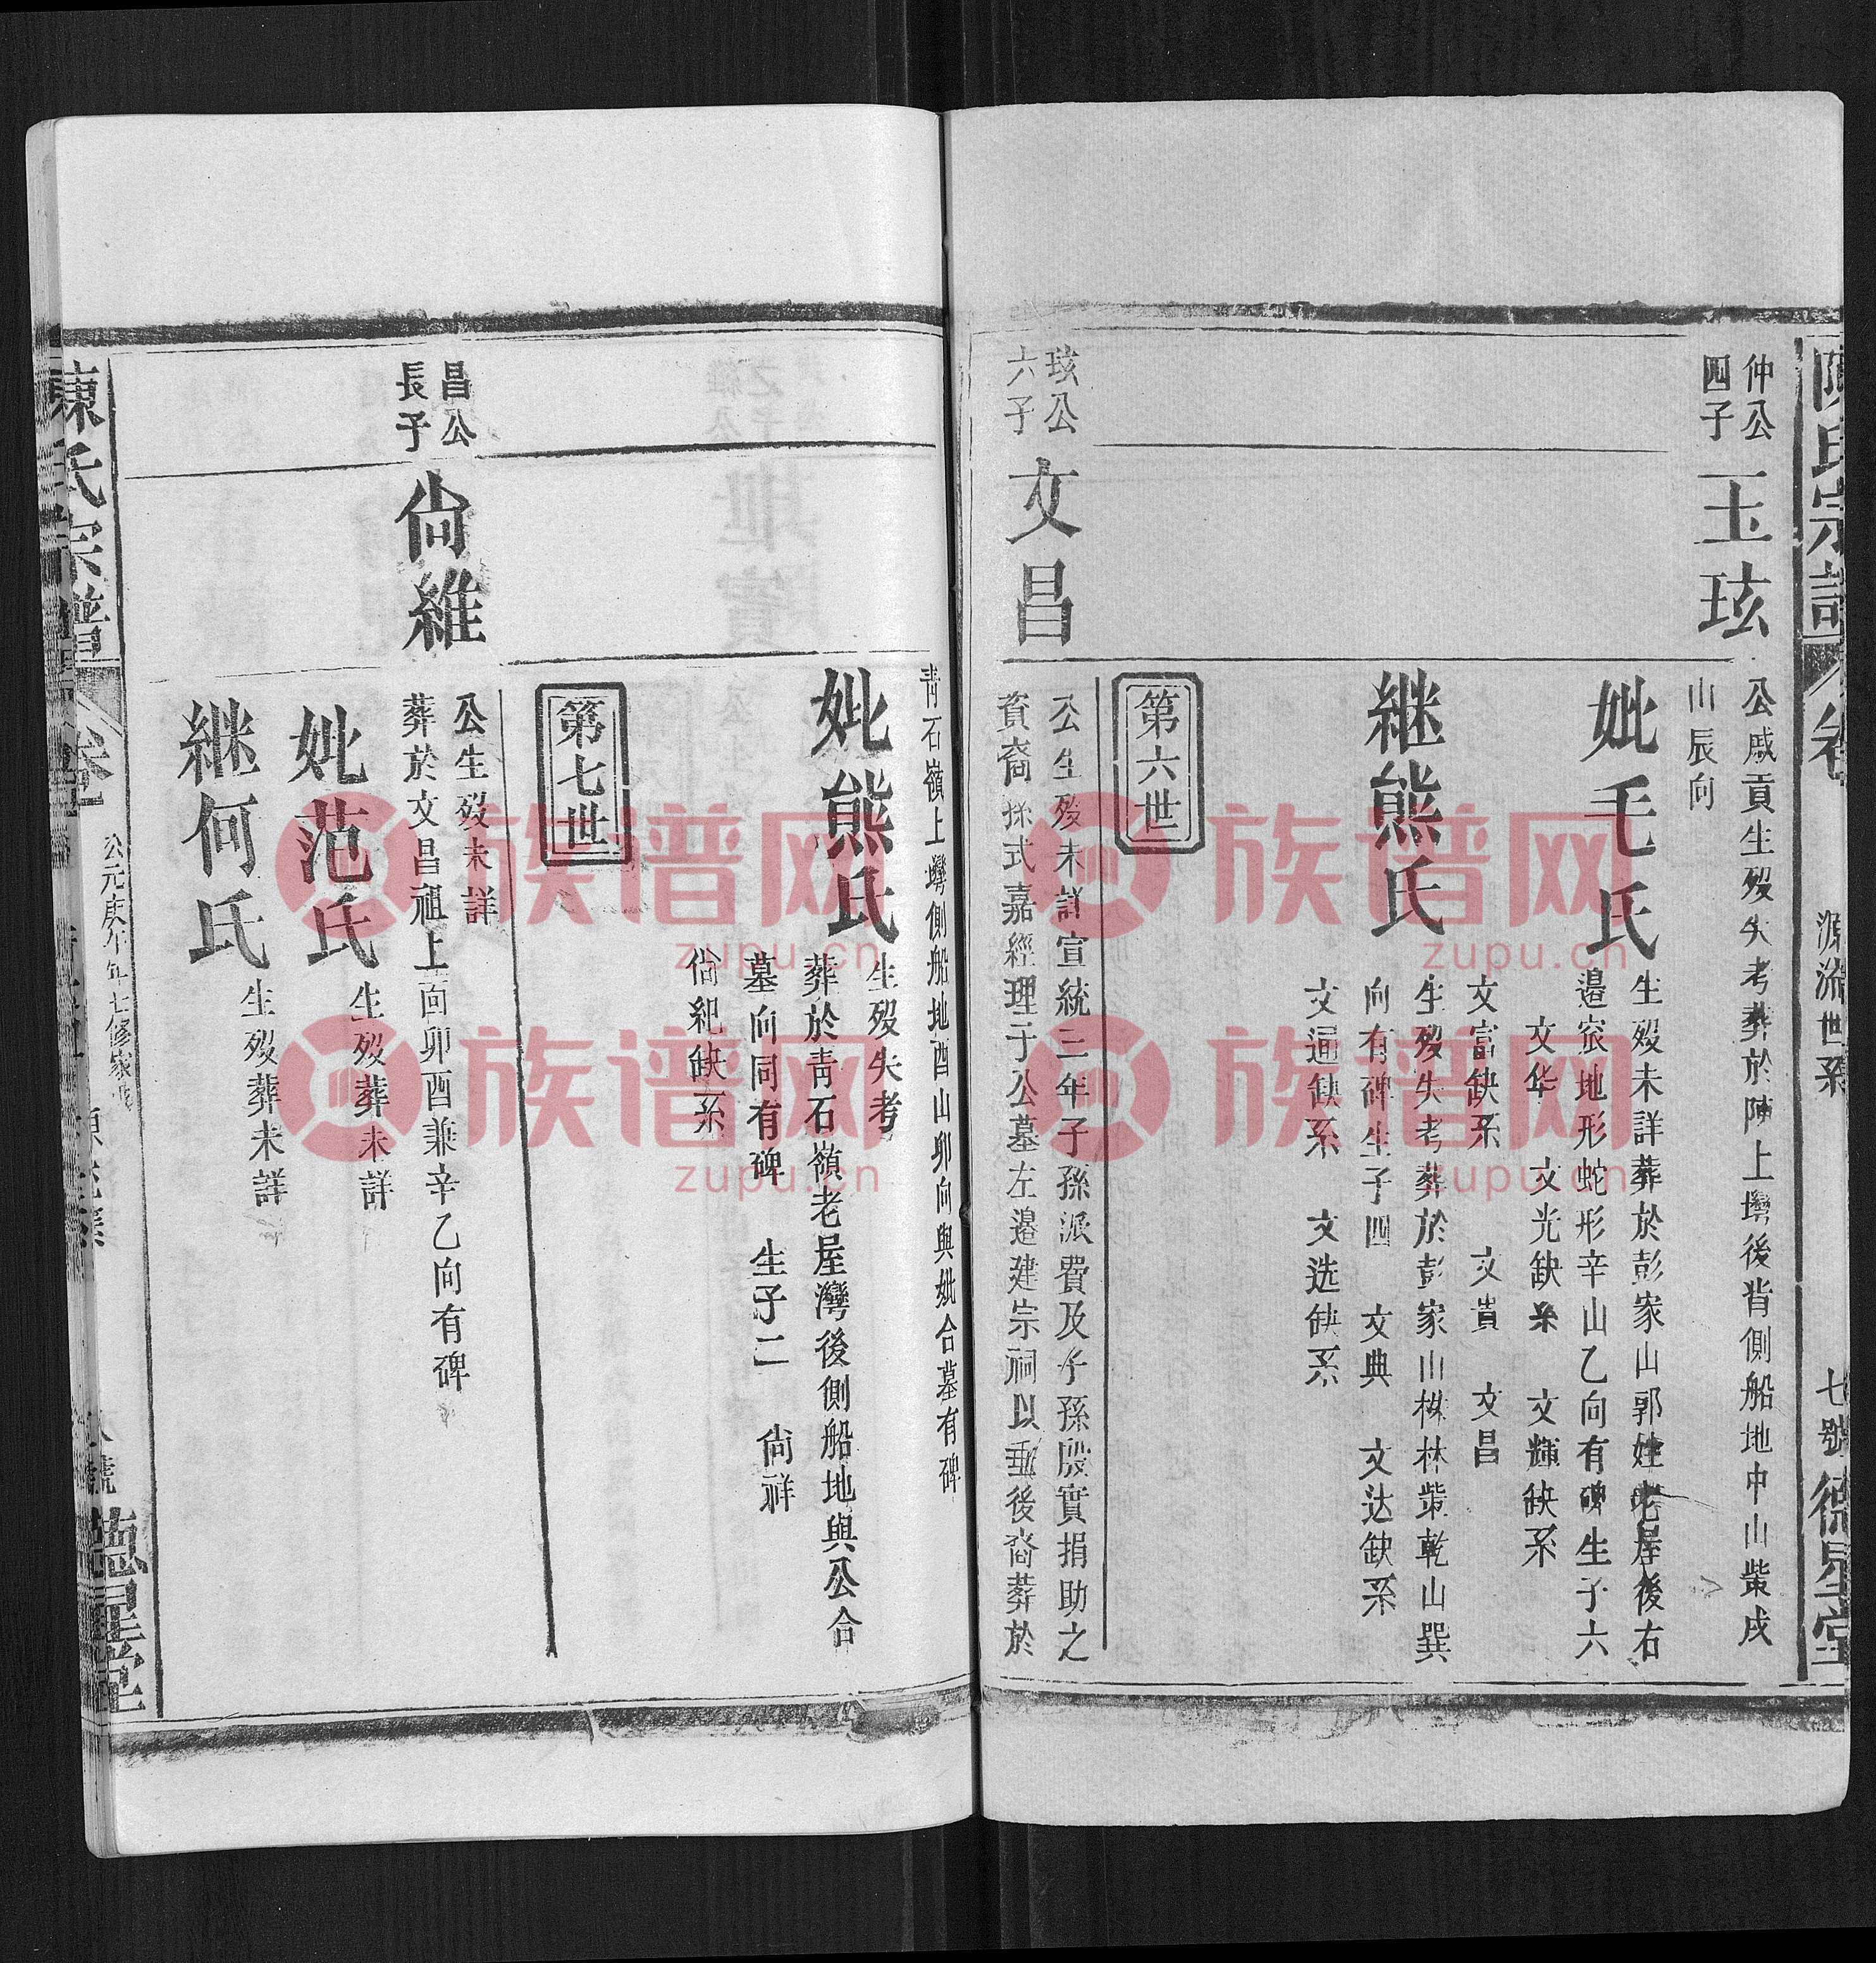 陳氏宗譜
源流世系
七號
德星堂
仲公
四子
玉玹
公戚貢生殁失考葬於陳上塆後背側船地中山柴戌
山辰向
妣毛氏
生殁未詳葬於彭家山郭娃老屋後右
邉窊地形蛇形辛山乙向有碑生子六
文华 文光缺系 文輝缺系
文富缺系 文貴 文昌
継熊氏
生殁失考葬於彭家山林柴乾山巽
向有碑生子四 文典 文达缺系
文逥缺系 文选缺系
第六世
玹公
六子
文昌
公生殁未詳宣統三年子孫派費及子孫殷實捐助之
資裔孫式嘉經理于公墓左邉建宗祠以垂後裔葬於
青石嶺上塆側船地酉山卯向與妣合墓有碑
妣熊氏
生殁失考
葬於青石嶺老屋灣後側船地與公合
墓向同有碑 生子二 尙祥
尙紀缺系
第七世
昌公
長子
尙維
公生殁未詳
葬於文昌祖上面卯酉兼辛乙向有碑
妣范氏
生殁葬未詳
継何氏
生殁葬未詳
陳氏宗譜
七修家
德星堂
族谱网
zupu.cn
族谱网
zupu.cn
族谱网
zupu.cn
族谱网
zupu.cn